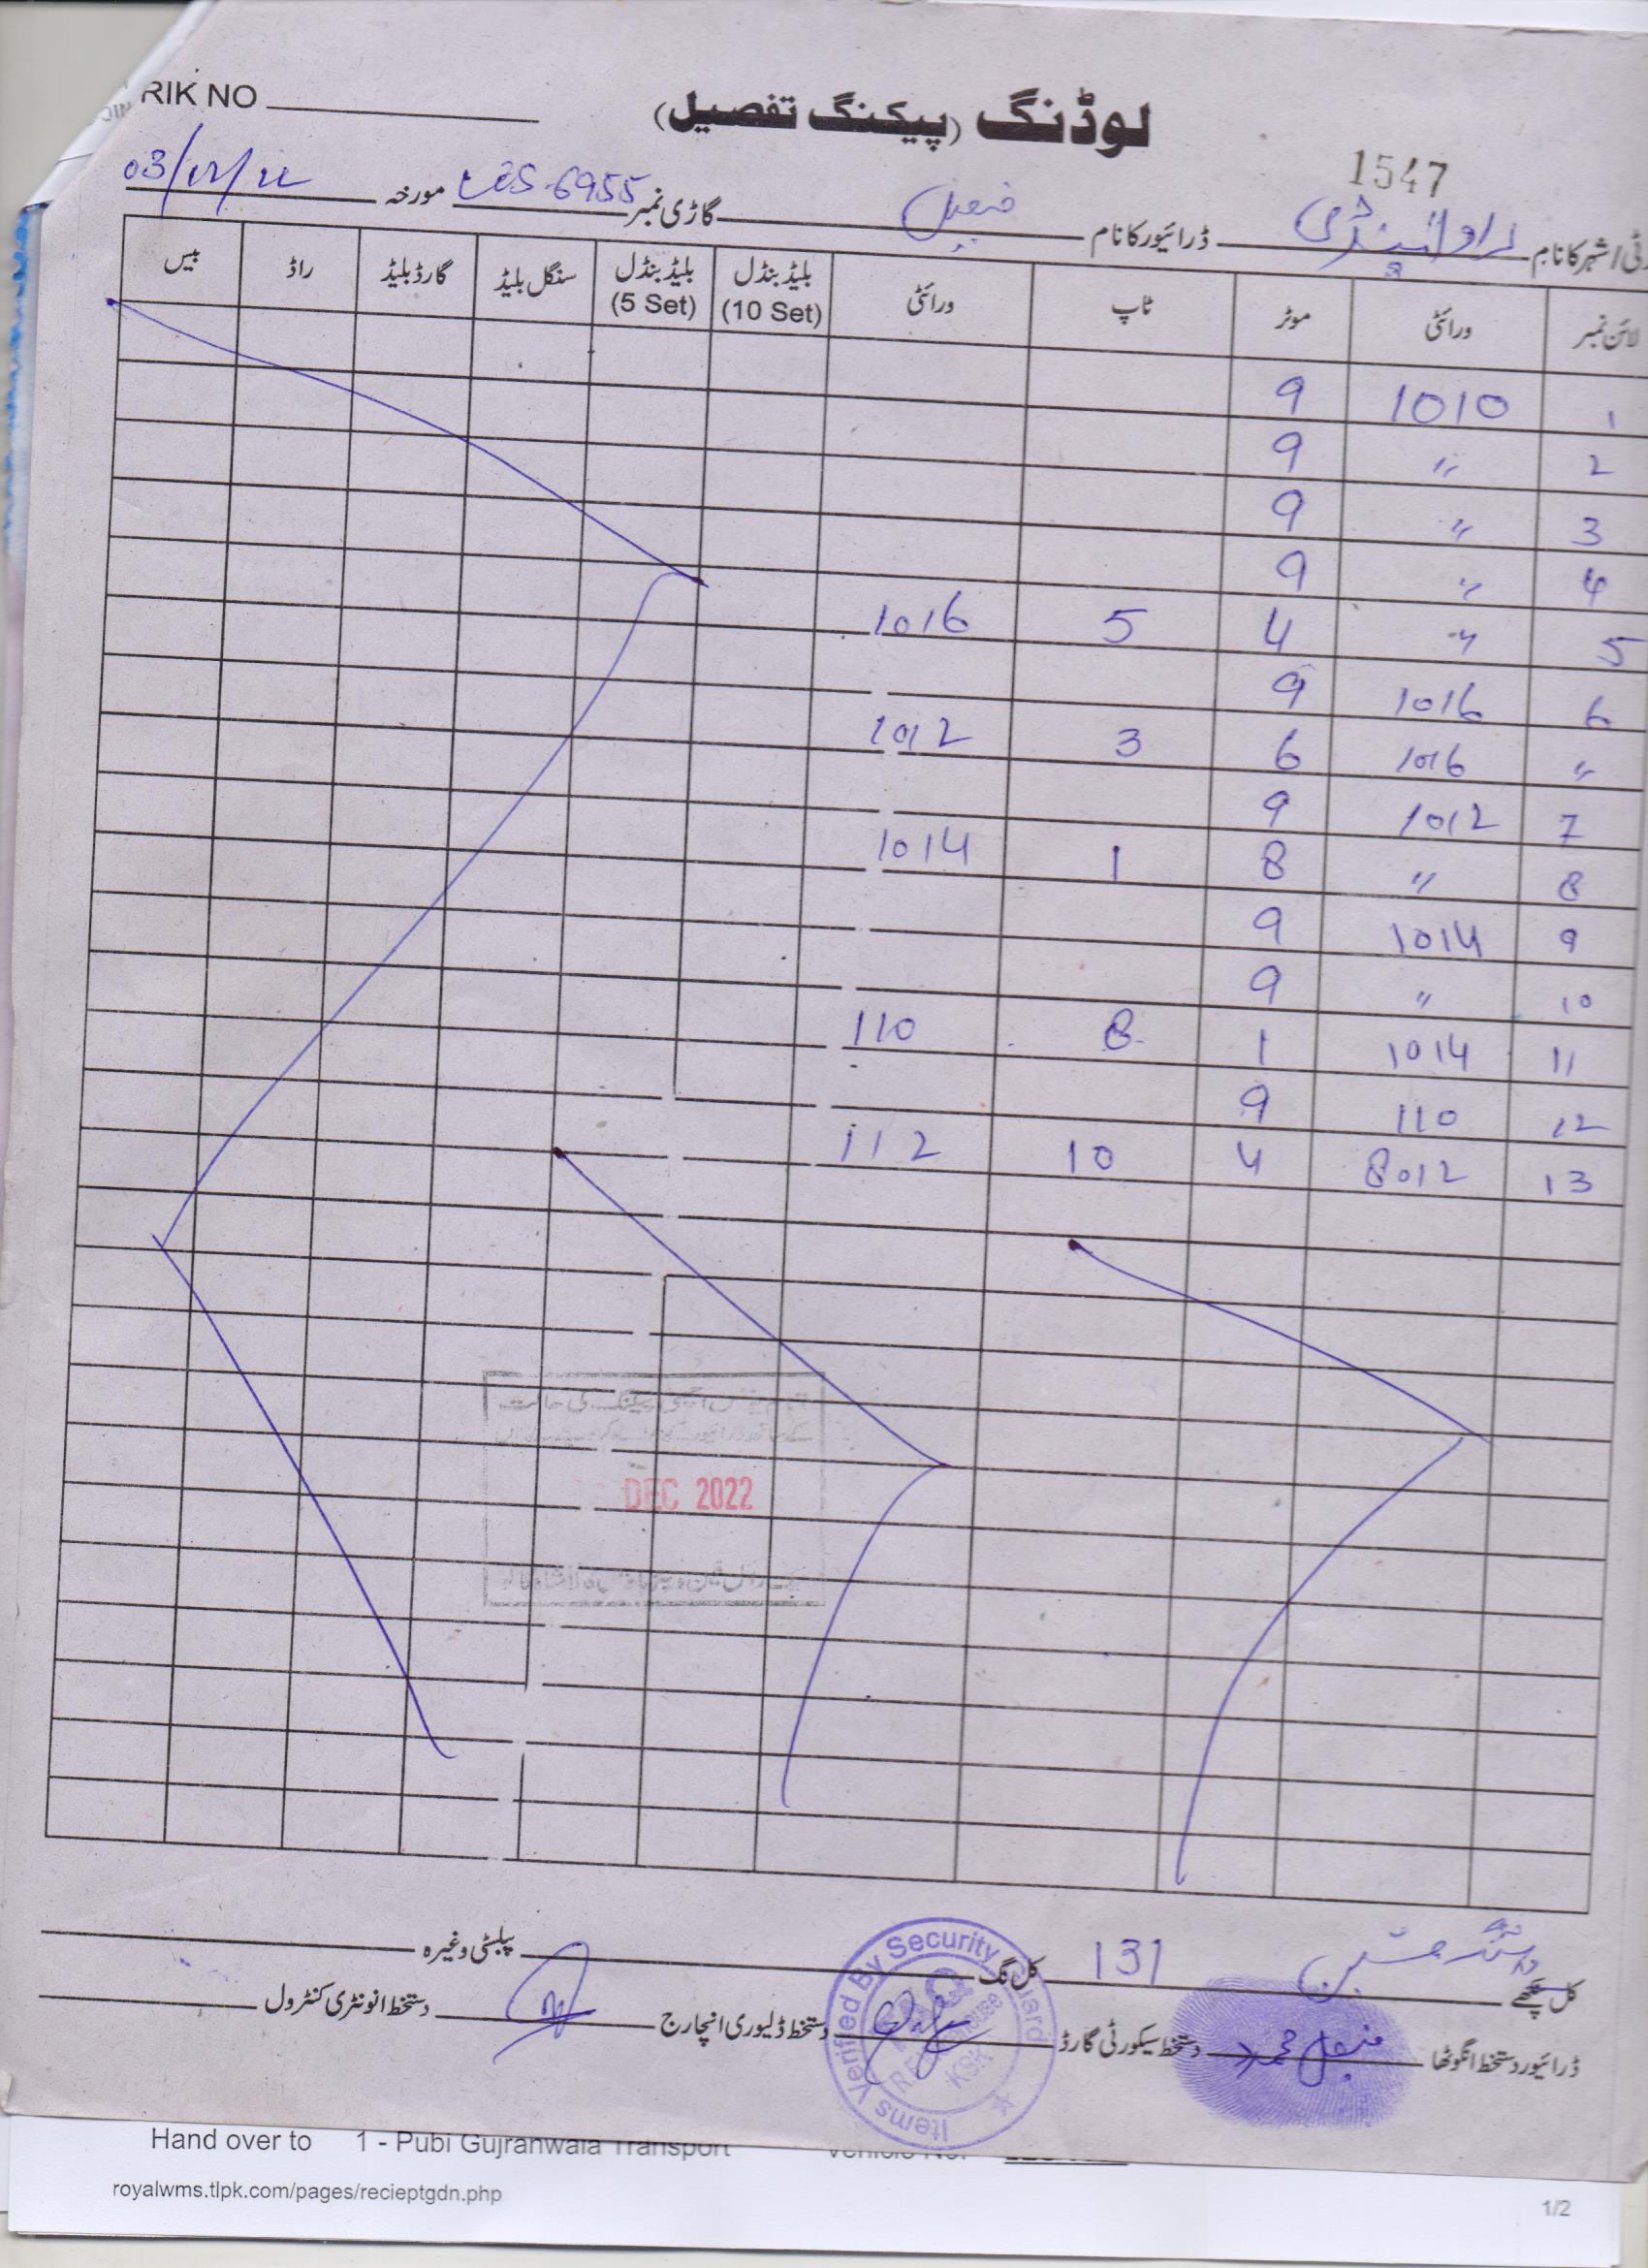 RIK NO
لوڈنگ (پیکنگ تفصیل)
1547
شہر کا نام راولپنڈی ڈرائیور کا نام گاڑی نمبر LES-6955 مورخہ 03/12/22
لائن نمبر ورائٹی موٹر ٹاپ ورائٹی بلیڈ بنڈل (10 Set) بلیڈ بنڈل (5 Set) سنگل بلیڈ گارڈ بلیڈ راڈ بیس
1 1010 9
2 〃 9
3 〃 9
4 〃 9
5 〃 4 5 1016
6 1016 9
〃 1016 6 3 1012
7 1012 9
8 〃 8 1 1014
9 1014 9
10 〃 9
11 1014 1 8 110
12 110 9
13 8012 4 10 112
DEC 2022
کل پنکھے کل نگ 131 پبلسٹی وغیرہ
ڈرائیور دستخط انگوٹھا دستخط سیکورٹی گارڈ دستخط ڈلیوری انچارج دستخط انونٹری کنٹرول
Items Verified By Security Guard
KSK
Hand over to 1 - Pubi Gujranwala Transport Vehicle No.
royalwms.tlpk.com/pages/recieptgdn.php
1/2